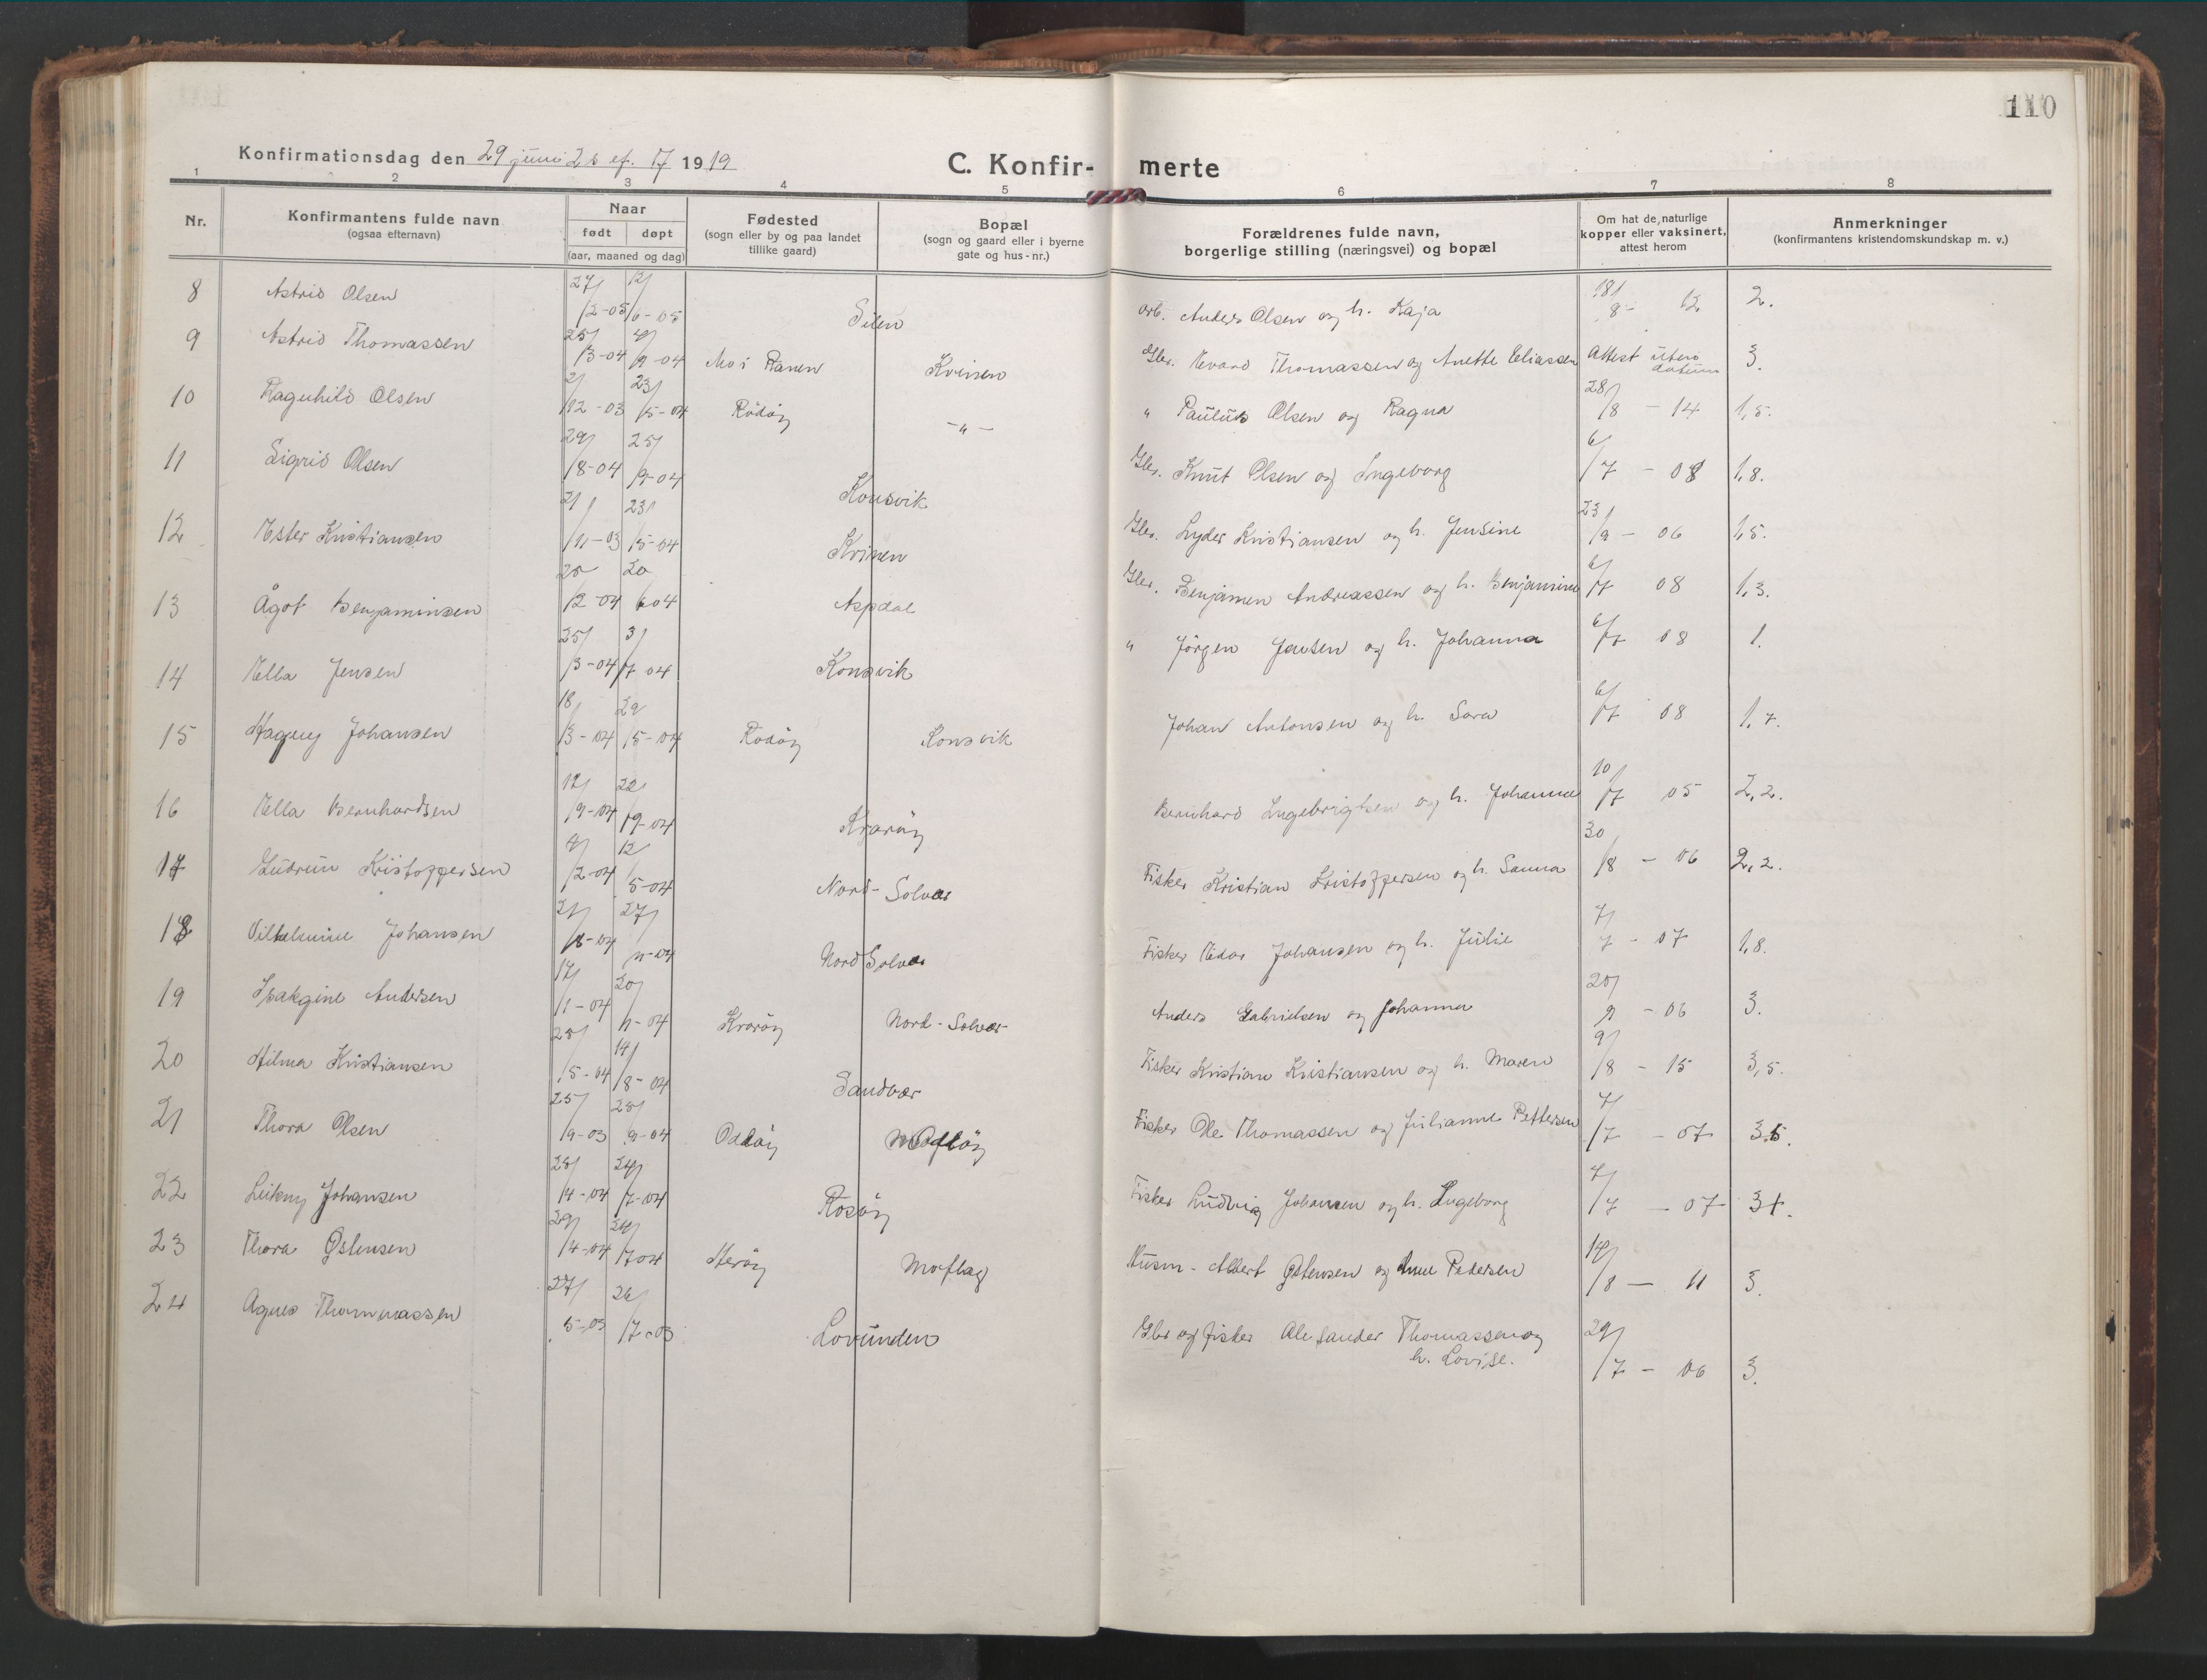 110
Konfirmationsdag den 29 juni 2 s ef. 17 1919
C. Konfir- merte
1 2 3 4 5 6 7 8
Nr.
Konfirmantens fulde navn
(ogsaa efternavn)
Naar
født døpt
(aar, maaned og dag)
Fødested
(sogn eller by og paa landet
tillike gaard)
Bopæl
(sogn og gaard eller i byerne
gate og hus-nr.)
Forældrenes fulde navn,
borgerlige stilling (næringsvei) og bopæl
Om hat de naturlige
kopper eller vaksinert,
attest herom
Anmerkninger
(konfirmantens kristendomskundskap m. v.)
8 Astrid Olsen 27/2-05 12/6-05 Silen arb. Anders Olsen og h. Kaja 18/8- 12 2.
9 Astrid Thomassen 25/3-04 4/9-04 Mo i Ranen Kvinen Gbr. Evard Thomassen og Anette Eliassen Attest uten datum 3.
10 Ragnhild Olsen 2/12-03 23/5-04 Rödöy -"- " Paulus Olsen og Ragna 28/8 - 14 1,5.
11 Sigrid Olsen 29/8-04 25/9-04 Konsvik Gbr. Knut Olsen og Ingeborg 6/7 - 08 1,8.
12 Ester Kristiansen 21/11-03 23/5-04 Kvinen Gbr. Lyder Kristiansen og h. Jensine 23/9 - 06 1,5.
13 Ågot Benjaminsen 20/2-04 20/6 04 Aspdal Gbr. Benjamen Andreassen og h. Benjamine 6/7 08 1,3.
14 Ella Jensen 25/3-04 3/7 04 Konsvik " Jörgen Jensen og h. Johanna 6/7 08 1.
15 Magny Johansen 18/3-04 29/5-04 Rödöy Konsvik Johan Antonsen og h. Sara 6/7 08 1,7.
16 Ella Bernhardsen 19-04 19-04 Kvaröy Bernhard Ingebrigtsen og h. Johanne 10/7 05 2,2.
17 Gudrun Kristoffersen 4/2-04 12/5-04 Nord-Solvær Fisker Kristian Kristoffersen og h. Sanna 30/8 - 06 2,2.
18 Vilhelmine Johansen 21/8-04 27/11-04 Nord Solvær Fisker Edor Johansen og h. Julie 7/7 - 07 1,8.
19 Isakgine Andersen 17/1-04 20/11-04 Kvaröy Nord-Solvær Anders Gabrielsen og Johanna 20/9 - 06 3.
20 Hilma Kristiansen 28/5-04 14/8-04 Sandvær Fisker Kristian Kristiansen og h. Maren 9/8 - 15 3,5.
21 Thora Olsen 25/9-03 25/9-04 Oddöy Fisker Ole Thomassen og Julianne Pettersen 7/7 - 07 3.5.
22 Leikny Johansen 28/4-04 24/7-04 Rosöy Fisker Ludvig Johansen og h. Ingeborg 7/7 - 07 3+.
23 Thora Østensen 29/4-04 24/7 04 Heröy Moflag Husm- Albert Østensen og Anne Pedersen 14/8 - 11 3.
24 Agnes Thommassen 27/5-03 26/7-03 Lovunden Gbr og fisker Alexander Thomassen og
h. Lovise. 29/7 - 06 3.